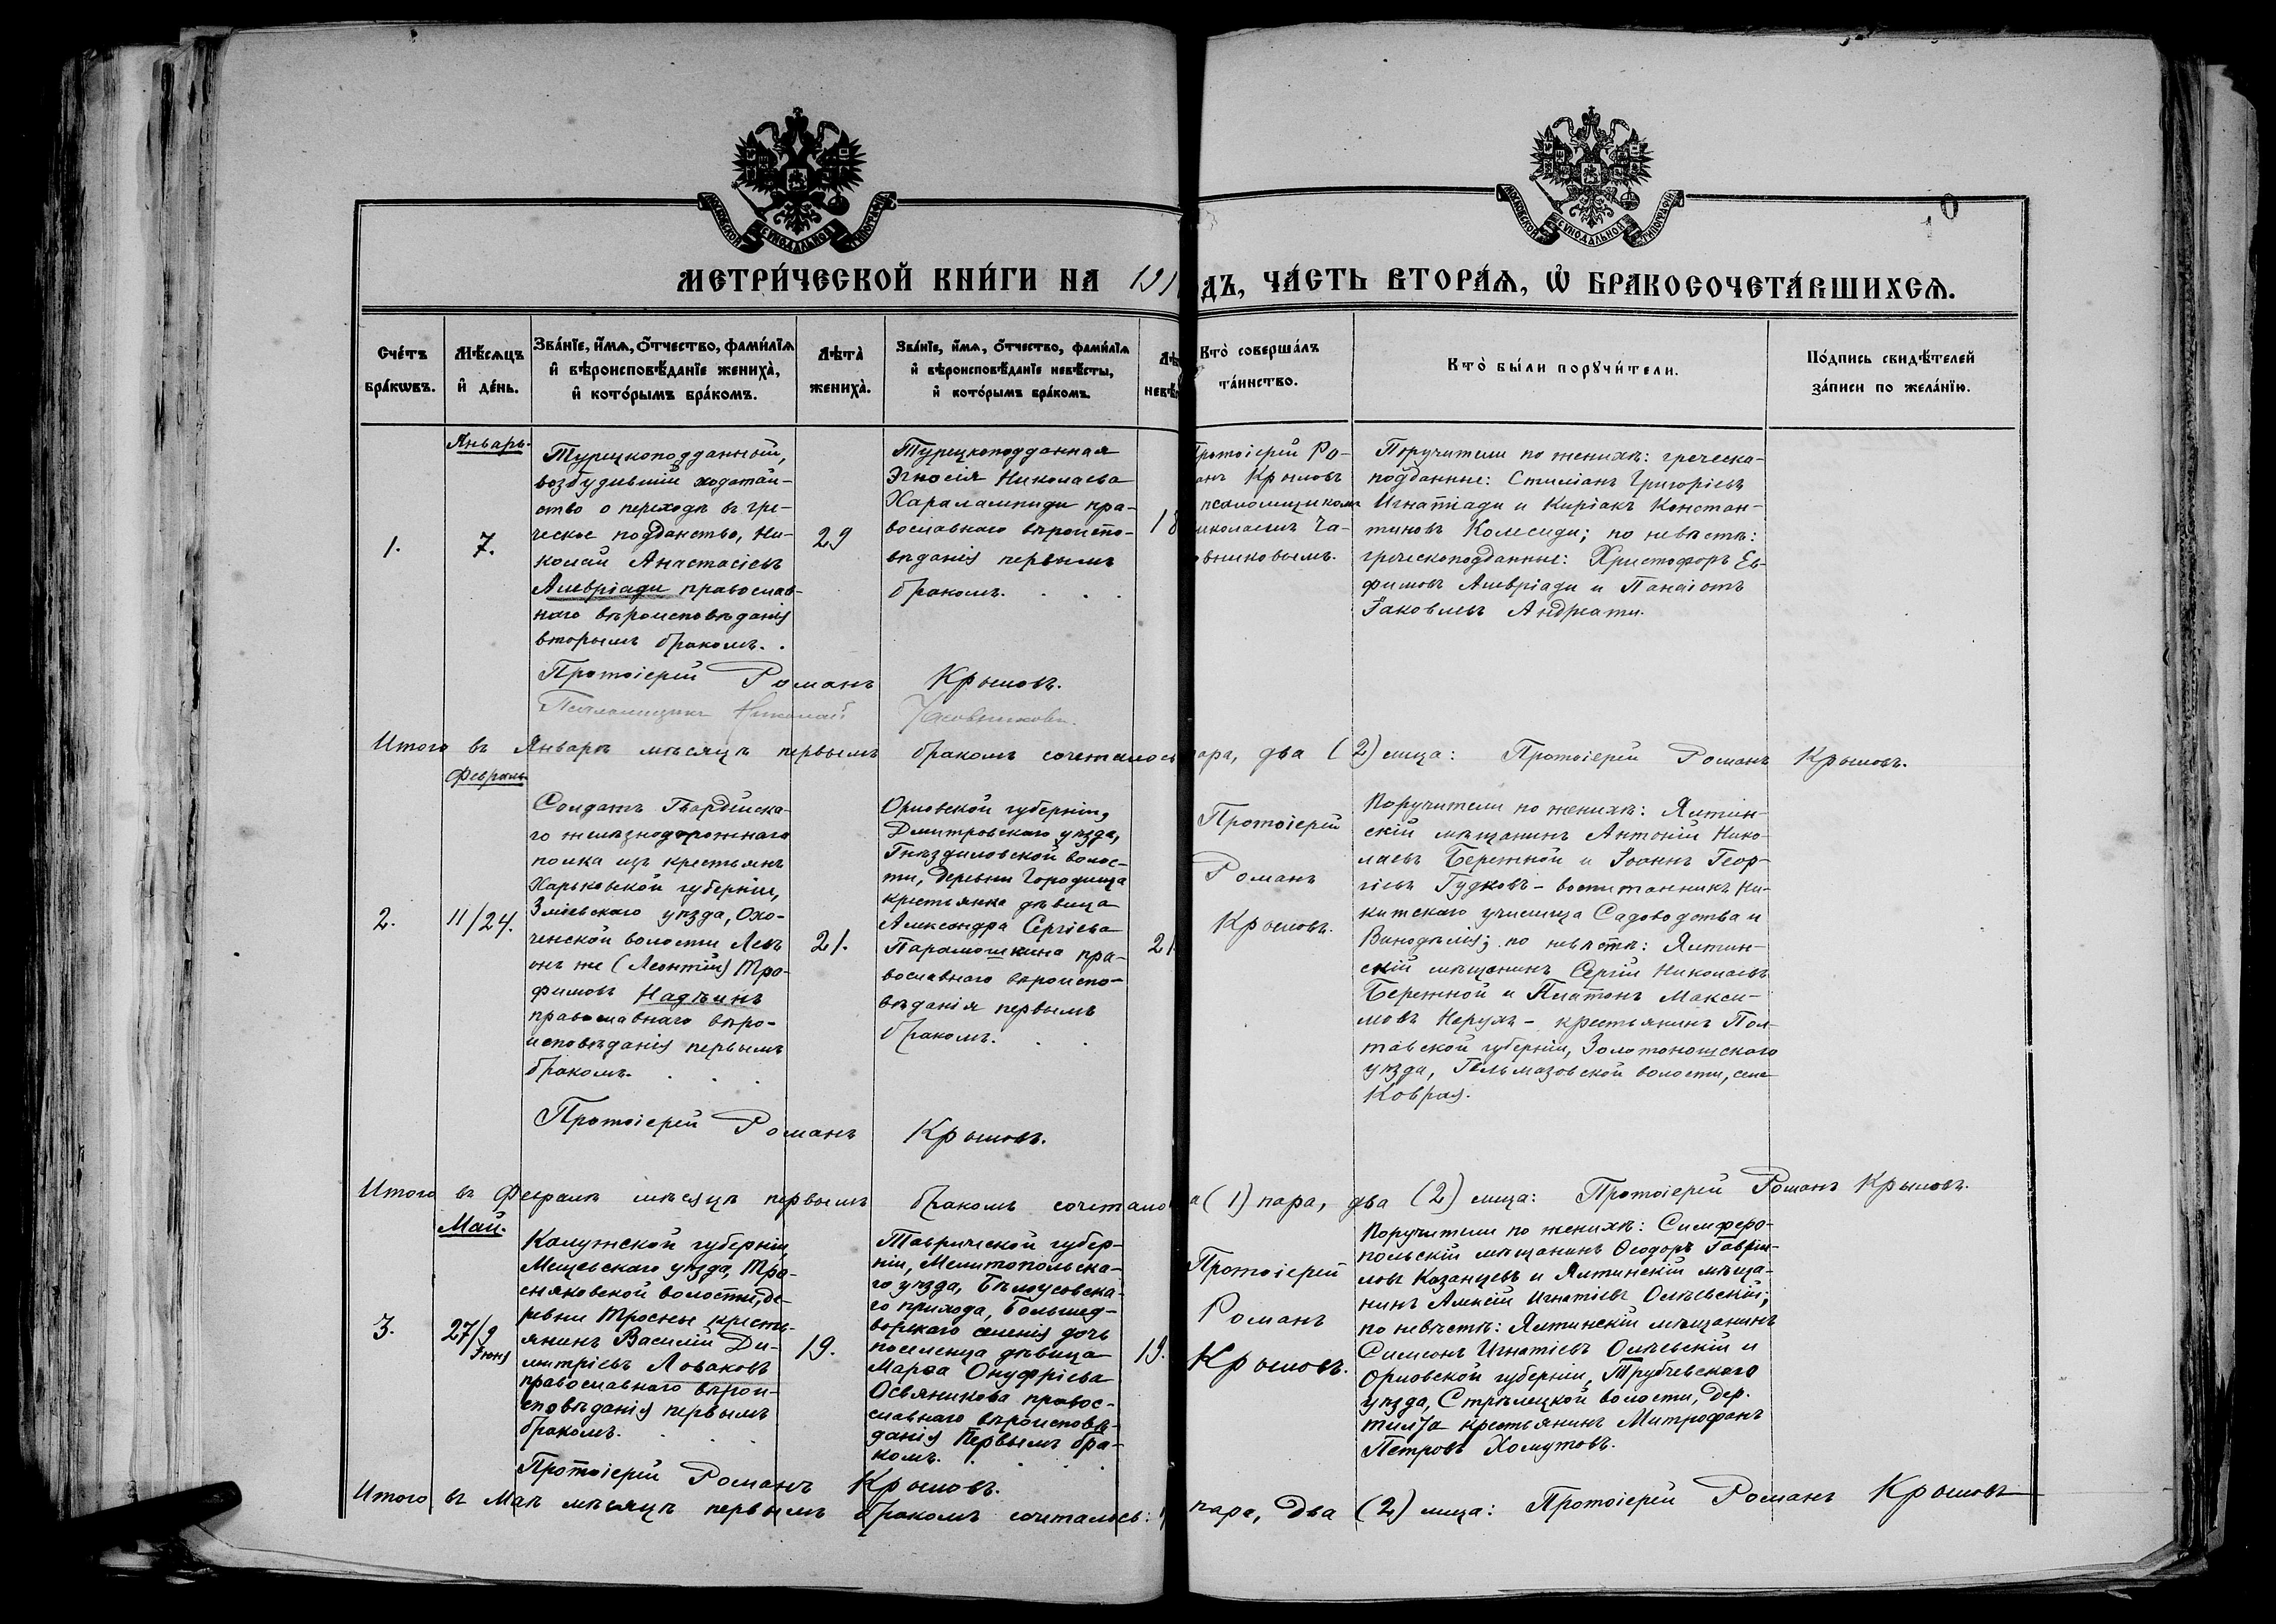 МОСКОВСКОЙ СУНОДАЛЬНОЙ ТИПОГРАФІИ
МОСКОВСКОЙ СУНОДАЛЬНОЙ ТИПОГРАФІИ
МЕТРИ́ЧЕСКОЙ КНИ́ГИ НА 191
ДЪ, ЧА́СТЬ ВТОРА́Ѧ, Ѡ҆ БРАКОСОЧЕТА́ВШИХСѦ.
Сче́тъ бра́кѡвъ.
Мѣ́сѧцъ и҆ де́нь.
Зва́нїе, и҆́мѧ, ѻ҆́тчество, фами́лїѧ
и҆ вѣроисповѣ́данїе жениха̀,
и҆ кото́рымъ бра́комъ.
Лѣта̀ жениха̀.
Зва́нїе, и҆́мѧ, ѻ҆́тчество, фами́лїѧ
и҆ вѣроисповѣ́данїе невѣ́сты,
и҆ кото́рымъ бра́комъ.
Лѣ
невѣ́
Кто̀ соверша́лъ
та́инство.
Кто̀ бы́ли порꙋчи́тели.
По́дпись свидѣ́телей
за́писи по жела́нїю.
Январь.
1.
7.
Турецкоподданный,
возбудившій ходатай-
ство о переходѣ въ гре-
ческое подданство, Ни-
колай Анастасіевъ
Алевріади православ-
наго вѣроисповѣданія
вторымъ бракомъ.
29
Турецкоподданная
Николаева
Харалампиди пра-
вославнаго вѣроиспо-
вѣданія первымъ
бракомъ.
18
Протоіерей Ро-
анъ Крыловъ
псаломщикомъ
иколаемъ Ча-
овниковымъ.
Поручители по женихѣ: греческо-
подданные: Стиліанъ Григорьевъ
Игнатіади и Киріакъ Констан-
тиновъ Колесиди; по невѣстѣ:
греческоподданные: Христофоръ Ев-
фимовъ Алевріади и Панаіотъ
Іаковлевъ Андреати.
Протоіерей Романъ Крыловъ.
Псаломщикъ Николай Часовниковъ.
Итого въ Январѣ мѣсяцѣ первымъ бракомъ сочеталось пара, два (2) лица: Протоіерей Романъ Крыловъ.
Февраль
2.
11/24.
Солдатъ Гвардейска-
го желѣзнодорожнаго
полка изъ крестьянъ
Харьковской губерніи,
Зміевскаго уѣзда, Охо-
ченской волости Левъ
онъ же (Леонтій) Тро-
фимовъ Надѣинъ
православнаго вѣро-
исповѣданія первымъ
бракомъ.
21.
Орловской губерніи,
Дмитровскаго уѣзда,
Гнѣздиловской волос-
ти, деревни Городища
крестьянка дѣвица
Александра Сергіева
Парамошкина пра-
вославнаго вѣроиспо-
вѣданія первымъ
бракомъ.
21
Протоіерей
Романъ
Крыловъ.
Поручители по женихѣ: Ялтин-
скій мѣщанинъ Антоній Нико-
лаевъ Бережной и Іоаннъ Геор-
гіевъ Гудковъ - воспитанникъ Ни-
китскаго училища Садоводства и
Винодѣлія; по невѣстѣ: Ялтин-
скій мѣщанинъ Сергій Николаевъ
Бережной и Платонъ Макси-
мовъ Нерухъ - крестьянинъ Пол-
тавской губерніи, Золотоношскаго
уѣзда, Гельмязовской волости, села
Коврая.
Протоіерей Романъ Крыловъ.
Итого въ Февралѣ мѣсяцѣ первымъ бракомъ сочетало а (1) пара, два (2) лица: Протоіерей Романъ Крыловъ.
Май.
3.
27/9
Іюня
Калужской губерніи,
Мещевскаго уѣзда, Тро-
сняковской волости, де-
ревни Тросны кресть-
янинъ Василій Ди-
митріевъ Лобаковъ
православнаго вѣрои-
сповѣданія первымъ
бракомъ.
19.
Таврической губер-
ніи, Мелитопольска-
го уѣзда, Бѣлоусовска-
го прихода,
селенія дочь
поселенца дѣвица
Марѳа Онуфріева
Освяникова правос-
лавнаго вѣроисповѣ-
данія первымъ бра-
комъ.
19.
Протоіерей
Романъ
Крыловъ.
Поручители по женихѣ: Симферо-
польскій мѣщанинъ Ѳеодоръ Гаврии-
ловъ Казанцевъ и Ялтинскій мѣща-
нинъ Алексій Игнатіевъ
по невѣстѣ: Ялтинскій мѣщанинъ
Симеонъ Игнатіевъ и
Орловской губерніи, Трубчевскаго
уѣзда, Стрѣлецкой волости, дер.
крестьянинъ Митрофанъ
Петровъ Хомутовъ.
Протоіерей Романъ Крыловъ.
Итого въ Маѣ мѣсяцѣ первымъ бракомъ сочеталась: 1 пара, два (2) лица: Протоіерей Романъ Крыловъ